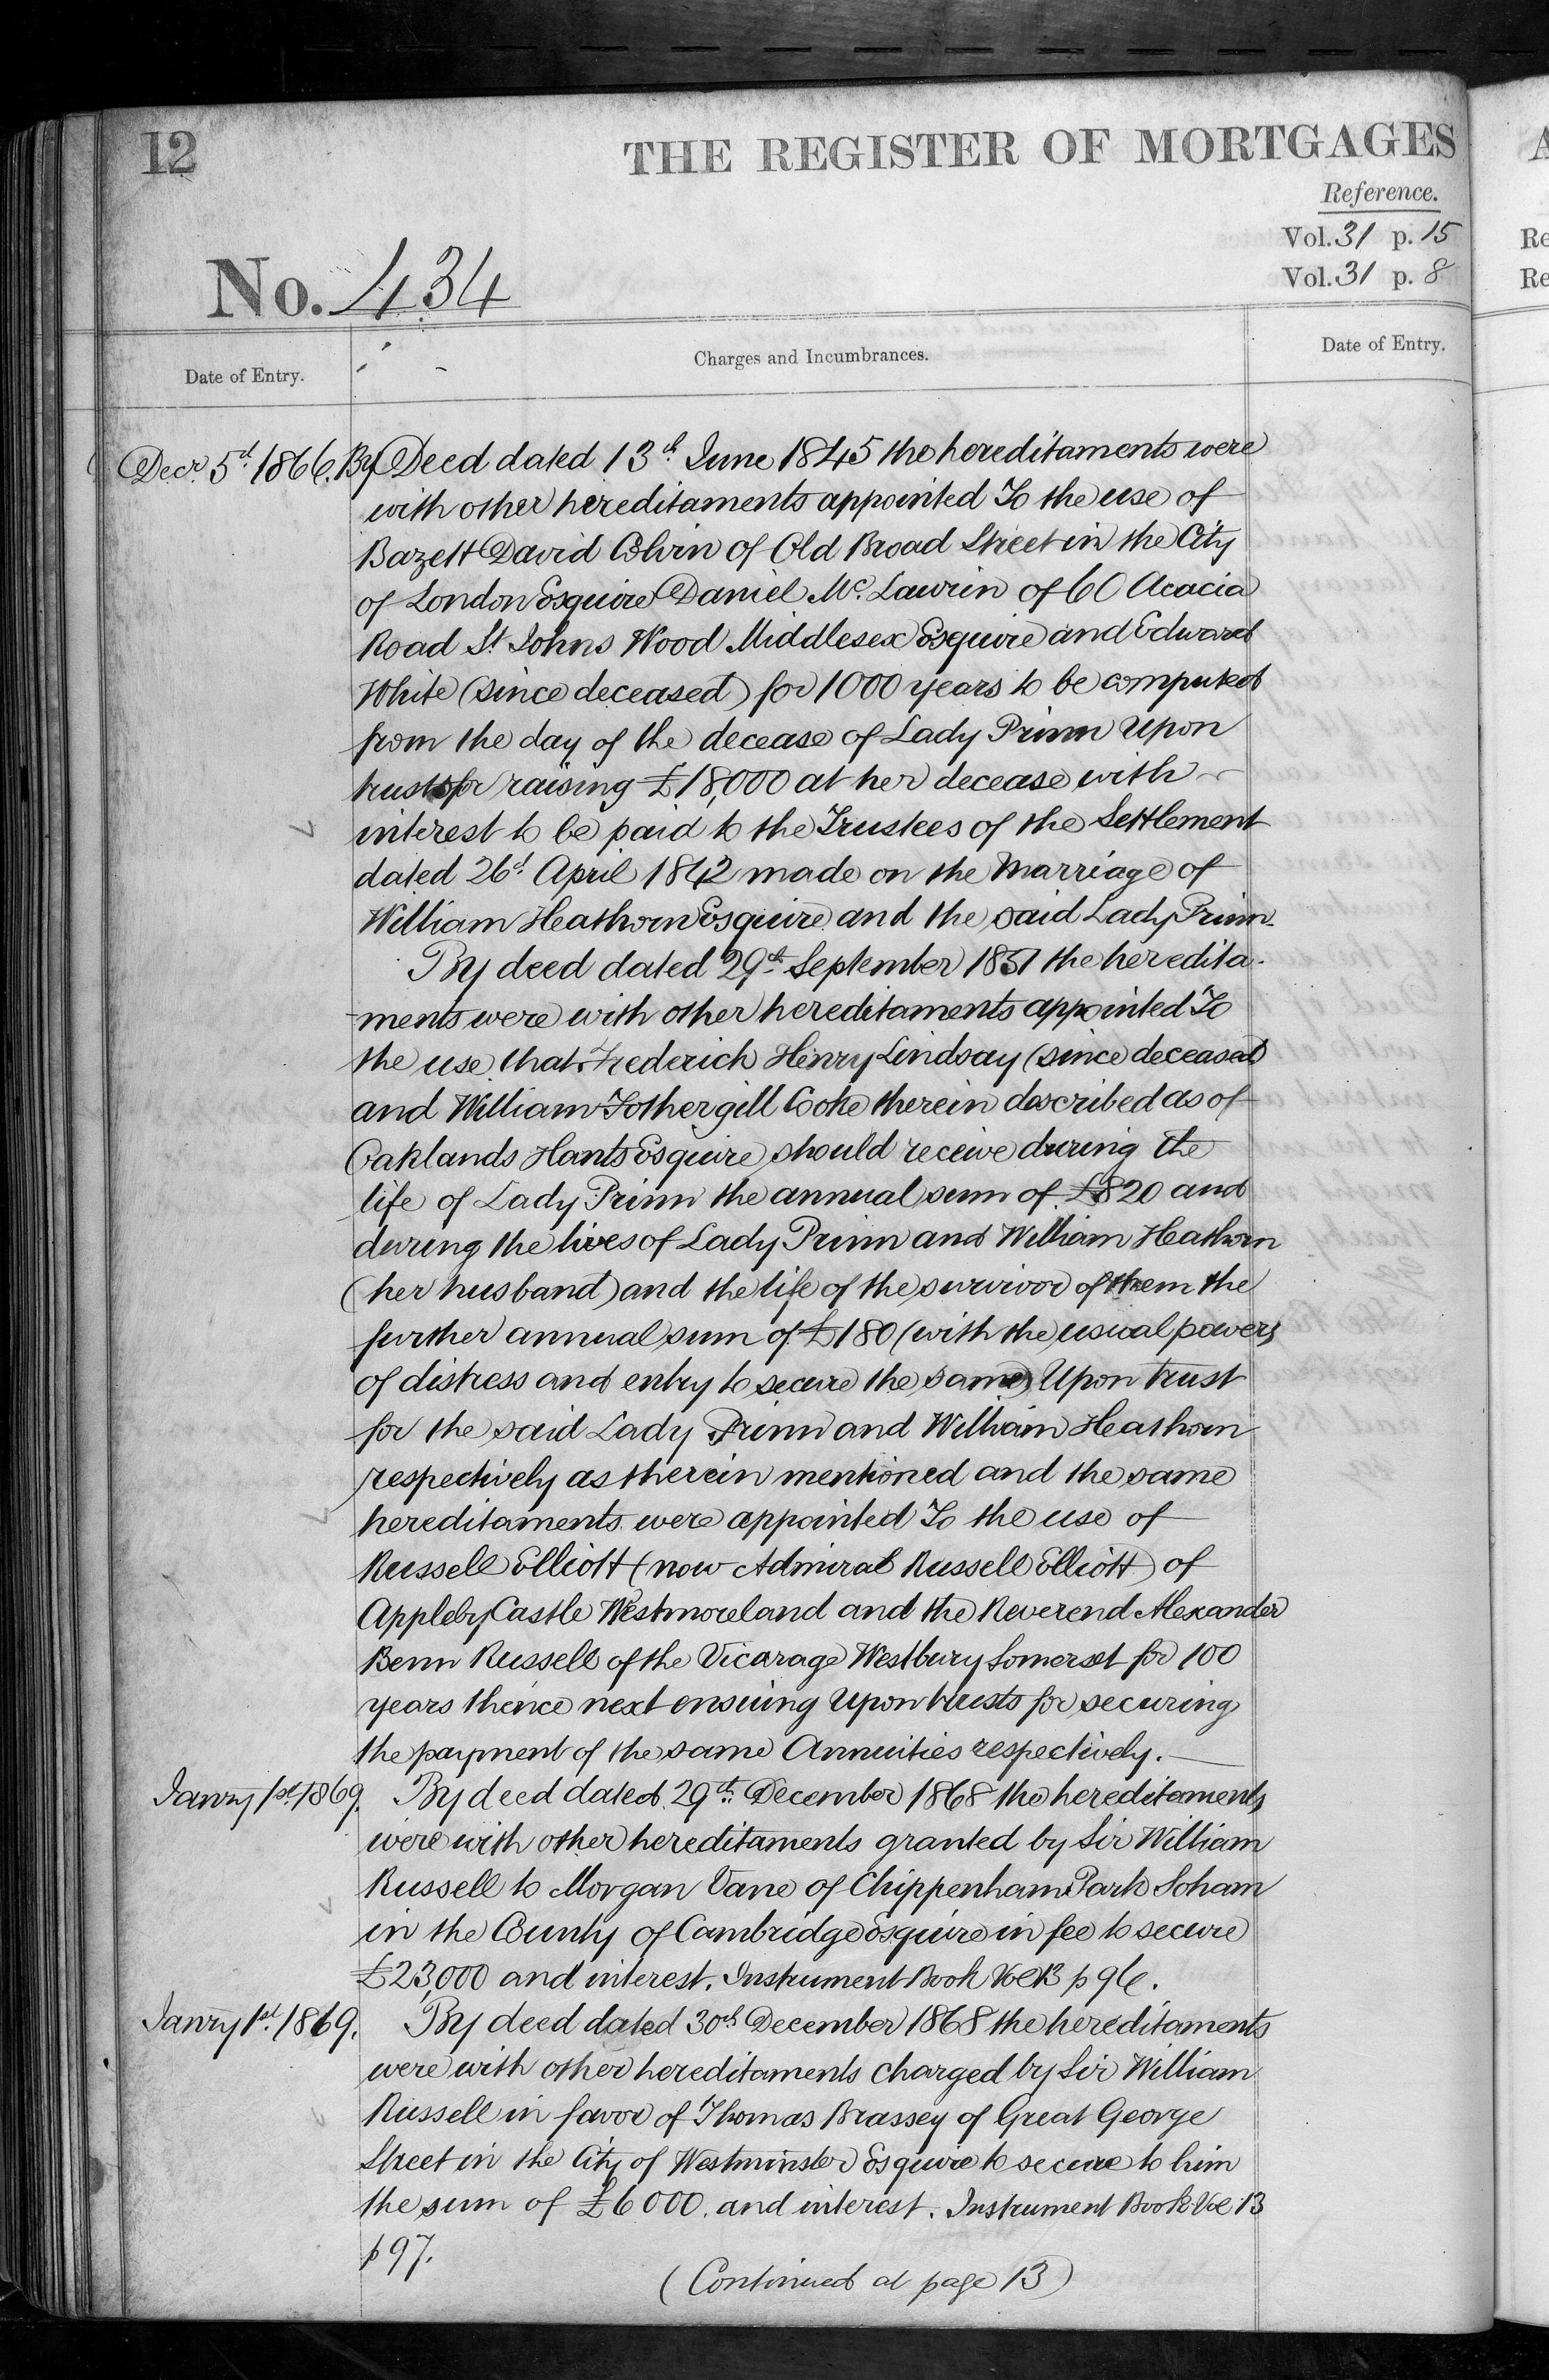 12
THE REGISTER OF MORTGAGES
Reference.
Vol. 31 p. 15
Vol. 31 p. 8
No. 434
Date of Entry.
Charges and Incumbrances.
Date of Entry.
Decr. 5th 1866. By Deed dated 13th June 1845 the hereditaments were
with other hereditaments appointed To the use of
Bazett David Colvin of Old Broad Street in the City
of London Esquire Daniel Mc. Laurin of 60 Acacia
Road St. Johns Wood Middlesex Esquire and Edward
White (since deceased) for 1000 years to be computed
from the day of the decease of Lady Prinn Upon
trusts for raising £18,000 at her decease with
interest to be paid to the Trustees of the Settlement
dated 26th April 1842 made on the Marriage of
William Heathorn Esquire and the said Lady Prinn.
By deed dated 29th September 1851 the heredita-
ments were with other hereditaments appointed To
the use that Frederick Henry Lindsay (since deceased
and William Fothergill Cooke therein described as of
Oaklands Hants Esquire should receive during the
life of Lady Prinn the annual sum of £820 and
during the lives of Lady Prinn and William Heathorn
(her husband) and the life of the survivor of them the
further annual sum of £180 (with the usual powers
of distress and entry to secure the same) Upon trust
for the said Lady Prinn and William Heathorn
respectively as therein mentioned and the same
hereditaments were appointed To the use of
Russell Elliott (now Admiral Russell Elliott) of
Appleby Castle Westmoreland and the Reverend Alexander
Benn Russell of the Vicarage Westbury Somerset for 100
years thence next ensuing Upon trusts for securing
the payment of the same Annuities respectively.
Janry 1st. 1869. By deed dated 29th December 1868 the hereditaments
were with other hereditaments granted by Sir William
Russell to Morgan Vane of Chippenham Park Soham
in the County of Cambridge Esquire in fee to secure
£23,000 and interest. Instrument Book Vol 13 p 96.
Janry 1st. 1869. By deed dated 30th December 1868 the hereditaments
were with other hereditaments charged by Sir William
Russell in favor of Thomas Brassey of Great George
Street in the City of Westminster Esquire to secure to him
the sum of £6000. and interest. Instrument Book Vol 13
p 97.
(Continued at page 13)
A
Re
Re